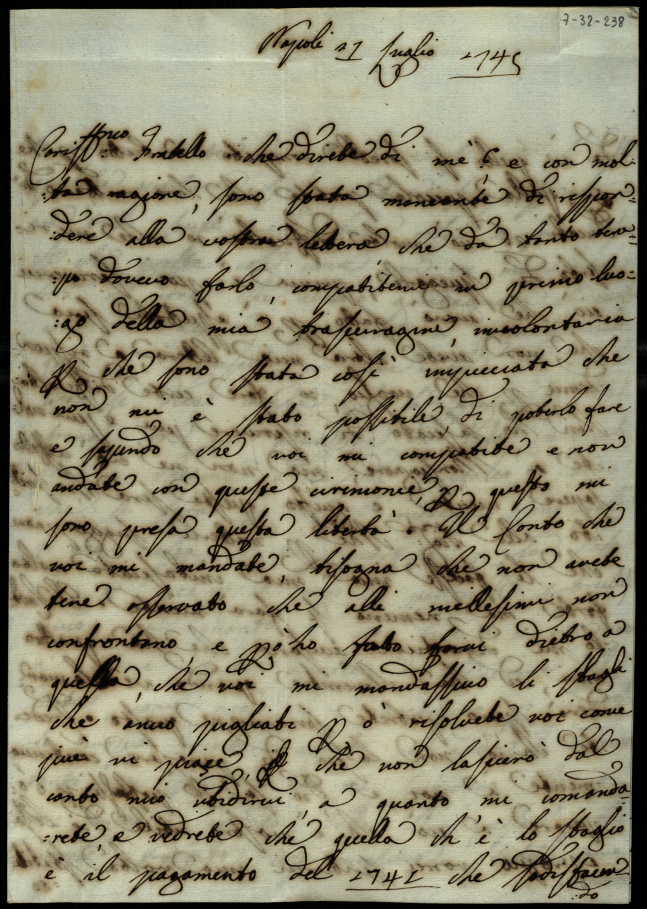 7-32-238
Napoli 27 luglio 1745
Cariss.mo Fratello che direte di mè? e con mol-
:ta ragione, sono stata mancante di rispon-
:dere alla vostra lettera, che da tanto tem-
:po dovevo farlo, compatitemi in primo luo-
:go della mia trascuragine involontaria
che sono stata così impicciata che
non mi è stato possibile di poterlo fare
e sapendo che voi mi compatite e non
andate con queste cirimonie, questo mi
sono presa questa libertà. Il Conto che
voi mi mandate, bisogna che non avete
bene osservato che alli millesimi non
confrontano e ho fatto dietro a
quella, che voi mi mandassivo li sbagli
che anno pigliati ò risolvete voi come
più vi piace, che non lascierò dal
canto mio ubidirvi, a quanto mi comanda-
:rete e vedrete che quella ch'è lo sbaglio
è il pagamento del 1741 che sodisfacen-
:do